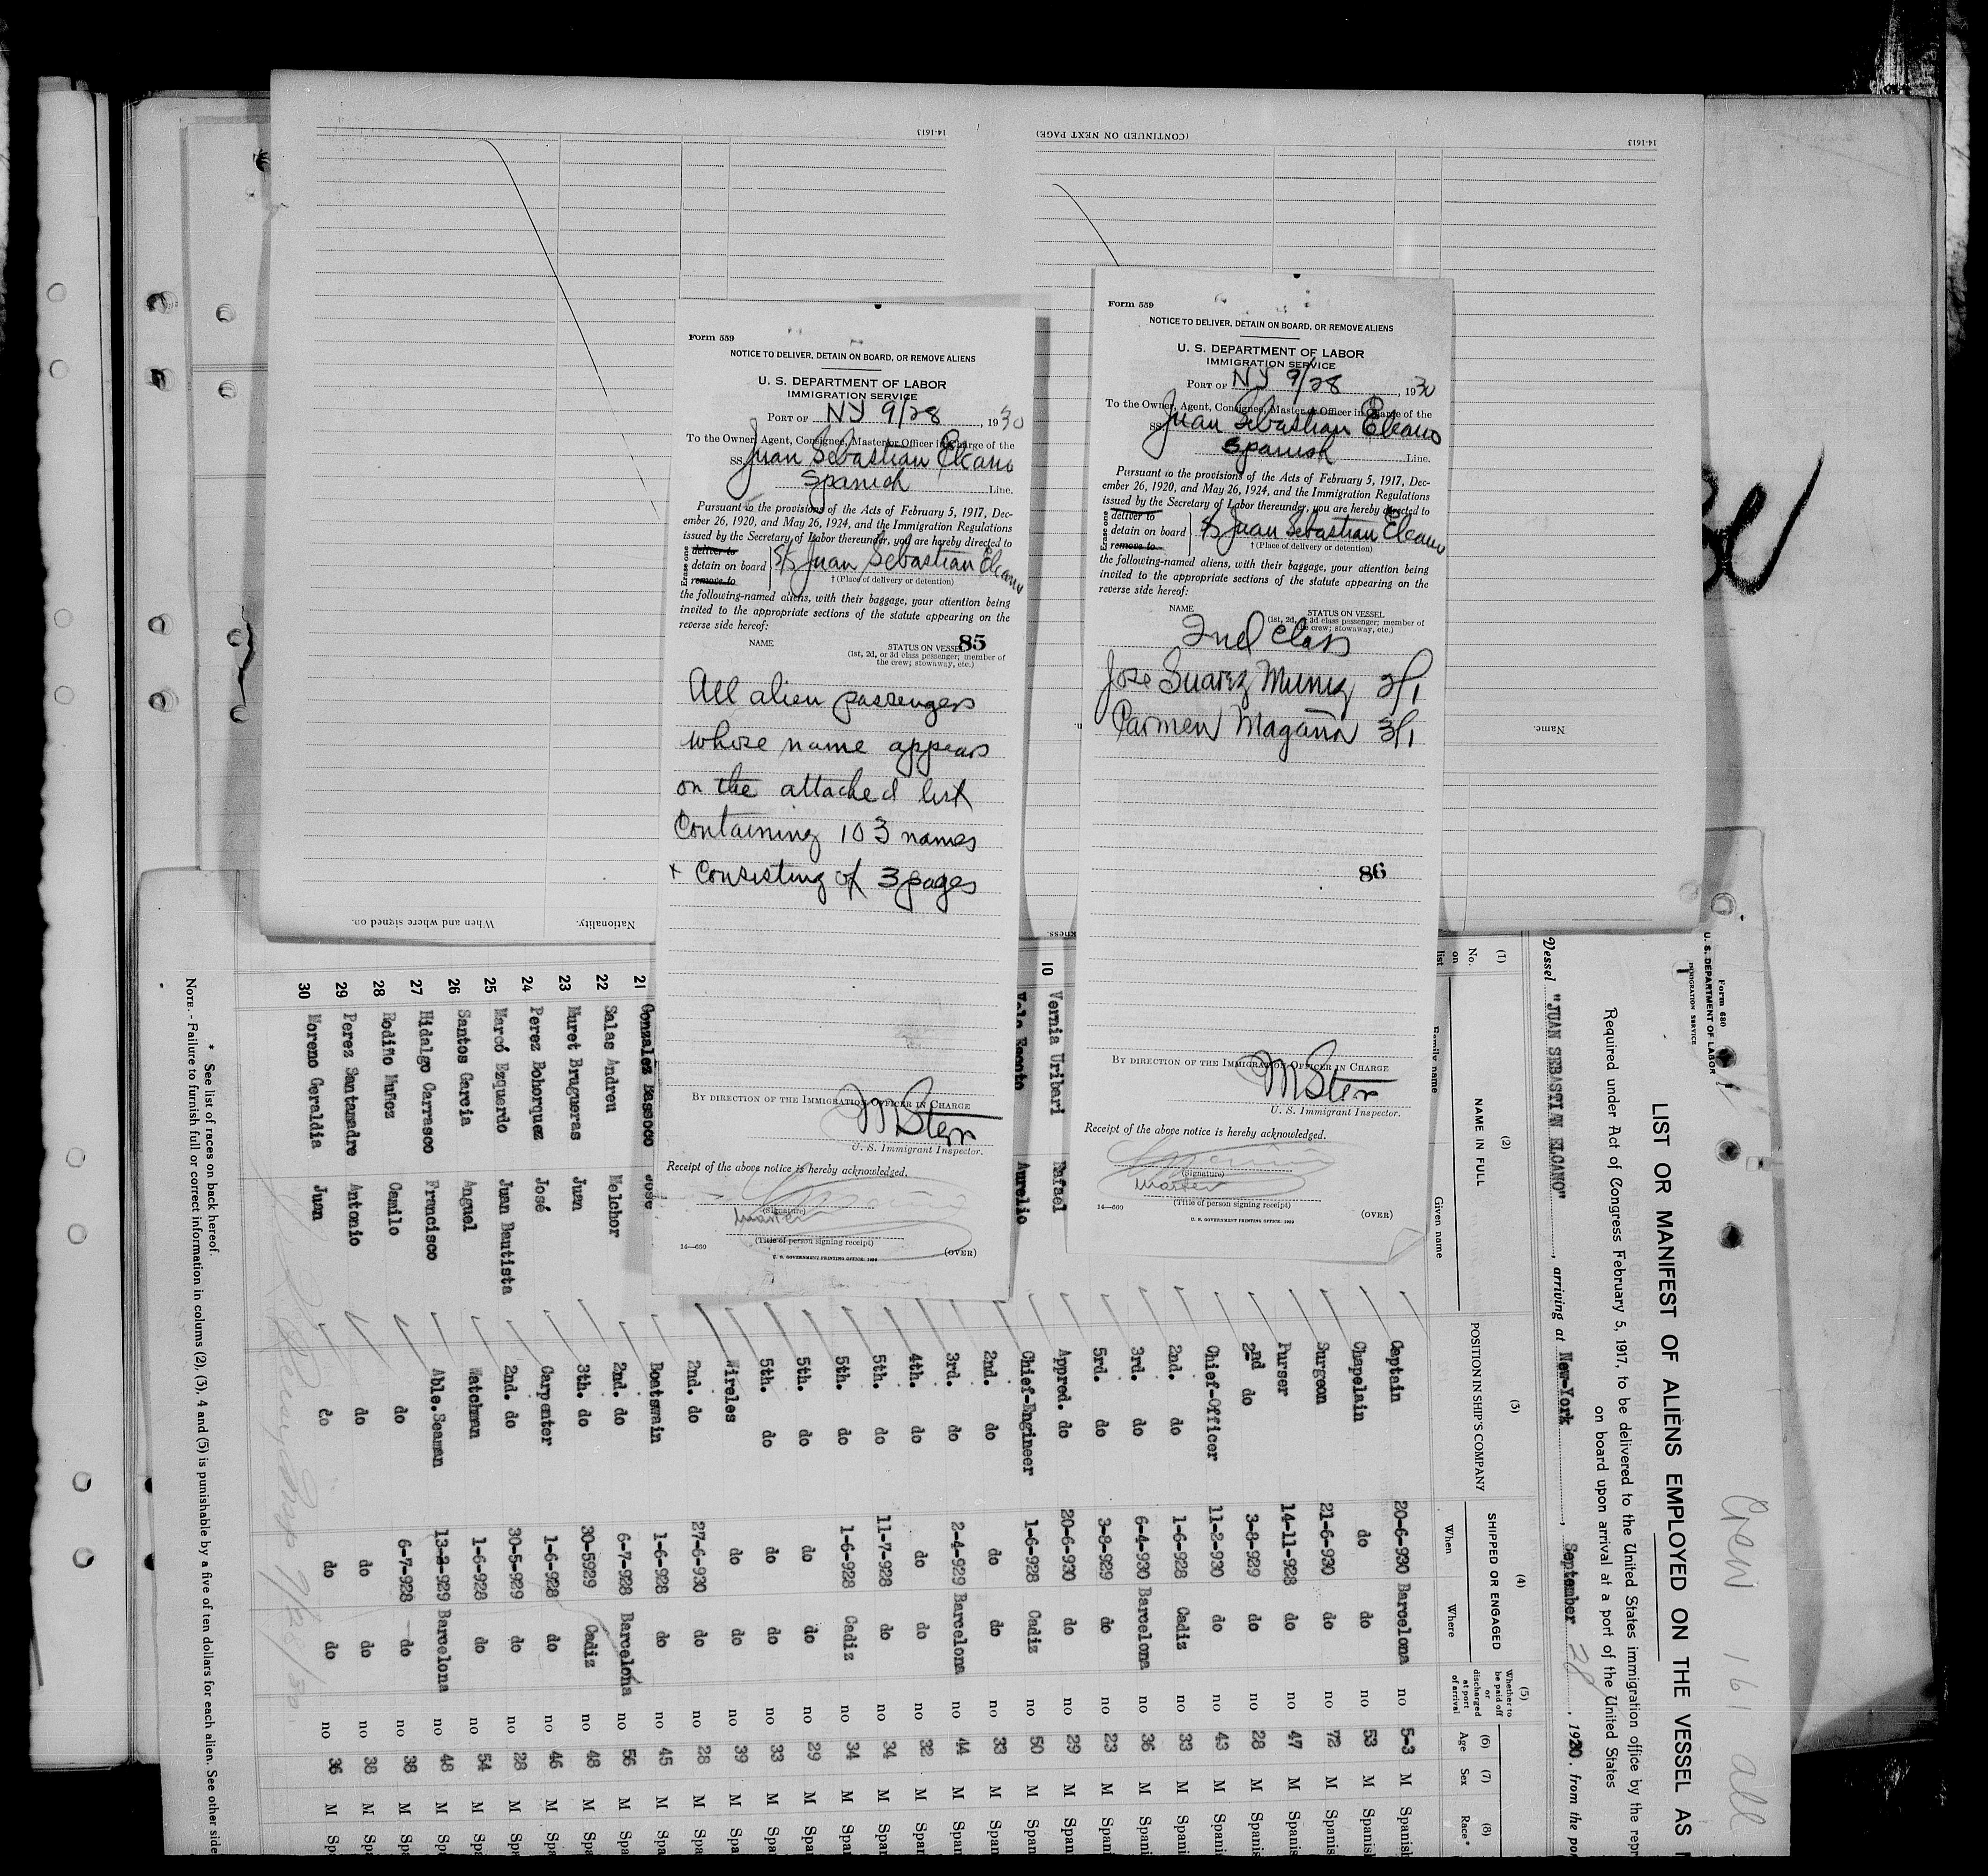 14-1613
(CONTINUED ON NEXT PAGE)
14-1613
When and where signed on.
Nationality.
Name.
Form 559
NOTICE TO DELIVER, DETAIN ON BOARD, OR REMOVE ALIENS
U. S. DEPARTMENT OF LABOR
IMMIGRATION SERVICE
PORT OF NY 9/28, 1930
To the Owner, Agent, Consignee, Master or Officer in Charge of the
SS. Juan Sebastian Elcano
Spanish Line.
Pursuant to the provisions of the Acts of February 5, 1917, Dec-
ember 26, 1920, and May 26, 1924, and the Immigration Regulations
issued by the Secretary of Labor thereunder, you are hereby directed to
Erase one
deliver to
detain on board
remove to
S/S Juan Sebastian Elcano
† (Place of delivery or detention)
the following-named aliens, with their baggage, your attention being
invited to the appropriate sections of the statute appearing on the
reverse side hereof:
85
NAME STATUS ON VESSEL
(1st, 2d, or 3d class passenger; member of
the crew; stowaway, etc.)
All alien passengers
whose name appears
on the attached list
Containing 103 names
+ Consisting of 3 pages
BY DIRECTION OF THE IMMIGRATION OFFICER IN CHARGE
M Sterr
U. S. Immigrant Inspector.
Receipt of the above notice is hereby acknowledged.
(Signature)
Master
(Title of person signing receipt)
14—660
U. S. GOVERNMENT PRINTING OFFICE: 1929
(OVER)
Form 559
NOTICE TO DELIVER, DETAIN ON BOARD, OR REMOVE ALIENS
U. S. DEPARTMENT OF LABOR
IMMIGRATION SERVICE
PORT OF NY 9/28, 1930
To the Owner, Agent, Consignee, Master or Officer in Charge of the
SS. Juan Sebastian Elcano
Spanish Line.
Pursuant to the provisions of the Acts of February 5, 1917, Dec-
ember 26, 1920, and May 26, 1924, and the Immigration Regulations
issued by the Secretary of Labor thereunder, you are hereby directed to
Erase one
deliver to
detain on board
remove to
S/S Juan Sebastian Elcano
† (Place of delivery or detention)
the following-named aliens, with their baggage, your attention being
invited to the appropriate sections of the statute appearing on the
reverse side hereof:
NAME STATUS ON VESSEL
(1st, 2d, or 3d class passenger; member of
the crew; stowaway, etc.)
2nd class
Jose Suarez Muniz 2/1
Carmen Magaña 3/1
86
BY DIRECTION OF THE IMMIGRATION OFFICER IN CHARGE
M Sterr
U. S. Immigrant Inspector.
Receipt of the above notice is hereby acknowledged.
(Signature)
Master
(Title of person signing receipt)
14—660
U. S. GOVERNMENT PRINTING OFFICE: 1929
(OVER)
Crew 161 all
Form 680
U. S. DEPARTMENT OF LABOR
IMMIGRATION SERVICE
LIST OR MANIFEST OF ALIENS EMPLOYED ON THE VESSEL AS
Required under Act of Congress February 5, 1917, to be delivered to the United States immigration office by the repr
on board upon arrival at a port of the United States
Vessel "JUAN SEBASTIAN ELCANO", arriving at New-York, September 28, 1930, from the por
(1) (2) (3) (4) (5) (6) (7) (8)
No. on list
NAME IN FULL
Family name Given name
POSITION IN SHIP'S COMPANY
SHIPPED OR ENGAGED
When Where
Whether to be paid off or discharged at port of arrival
Age Sex Race*
Captain 20-6-930 Barcelona no 5-3 M Spanish
Chapelain do do no 53 M Spanish
Surgeon 21-6-930 do no 72 M Spanis
Purser 14-11-928 do no 47 M Spanis
2nd do 3-8-929 do no 28 M Spanis
Chief-Officer 11-2-930 do no 43 M Spanis
2nd. do 1-6-928 Cadiz no 33 M Spanis
3rd. do 6-4-930 Barcelona no 36 M Span
5rd. do 3-8-929 do no 23 M Span
10 Vernia Uribari Rafael Appred. do 20-6-930 do no 29 M Span
Aurelio Chief-Engineer 1-6-928 Cadiz no 50 M Span
2nd. do do do no 33 M Span
3rd. do 2-4-929 Barcelona no 44 M Span
4th. do do do no 32 M Span
5th. do 11-7-928 do no 34 M Span
5th. do 1-6-928 Cadiz no 34 M Span
5th. do do do no 29 M Spa
5th. do do do no 33 M Spa
Wireles do do no 39 M Spa
2nd. do 27-6-930 do no 28 M Spa
21 Gonzalez Bassoco Jose Boatswain 1-6-928 do no 45 M Spa
22 Salas Andreu Melchor 2nd. do 6-7-928 Barcelona no 56 M Spa
23 Muret Brugueras Juan 3th. do 30-5929 Cadiz no 48 M Spa
24 Perez Bohorquez José Carpenter 1-6-928 do no 46 M Spa
25 Marcó Ezquerdo Juan Bautista 2nd. do 30-5-929 do no 28 M Spa
26 Santos Garcia Anguel Watchman 1-6-928 do no 54 M Spa
27 Hidalgo Carrasco Francisco Able.Seaman 13-2-929 Barcelona no 48 M Spa
28 Rodiño Muñoz Camilo do 6-7-928 do no 38 M Spa
29 Perez Santamadre Antonio do do do no 38 M Spa
30 Moreno Geraldia Juan do do do no 36 M Spa
9/28/30
* See list of races on back hereof.
NOTE. - Failure to furnish full or correct information in colums (2), (3), 4 and (5) is punishable by a five of ten dollars for each alien. See other side